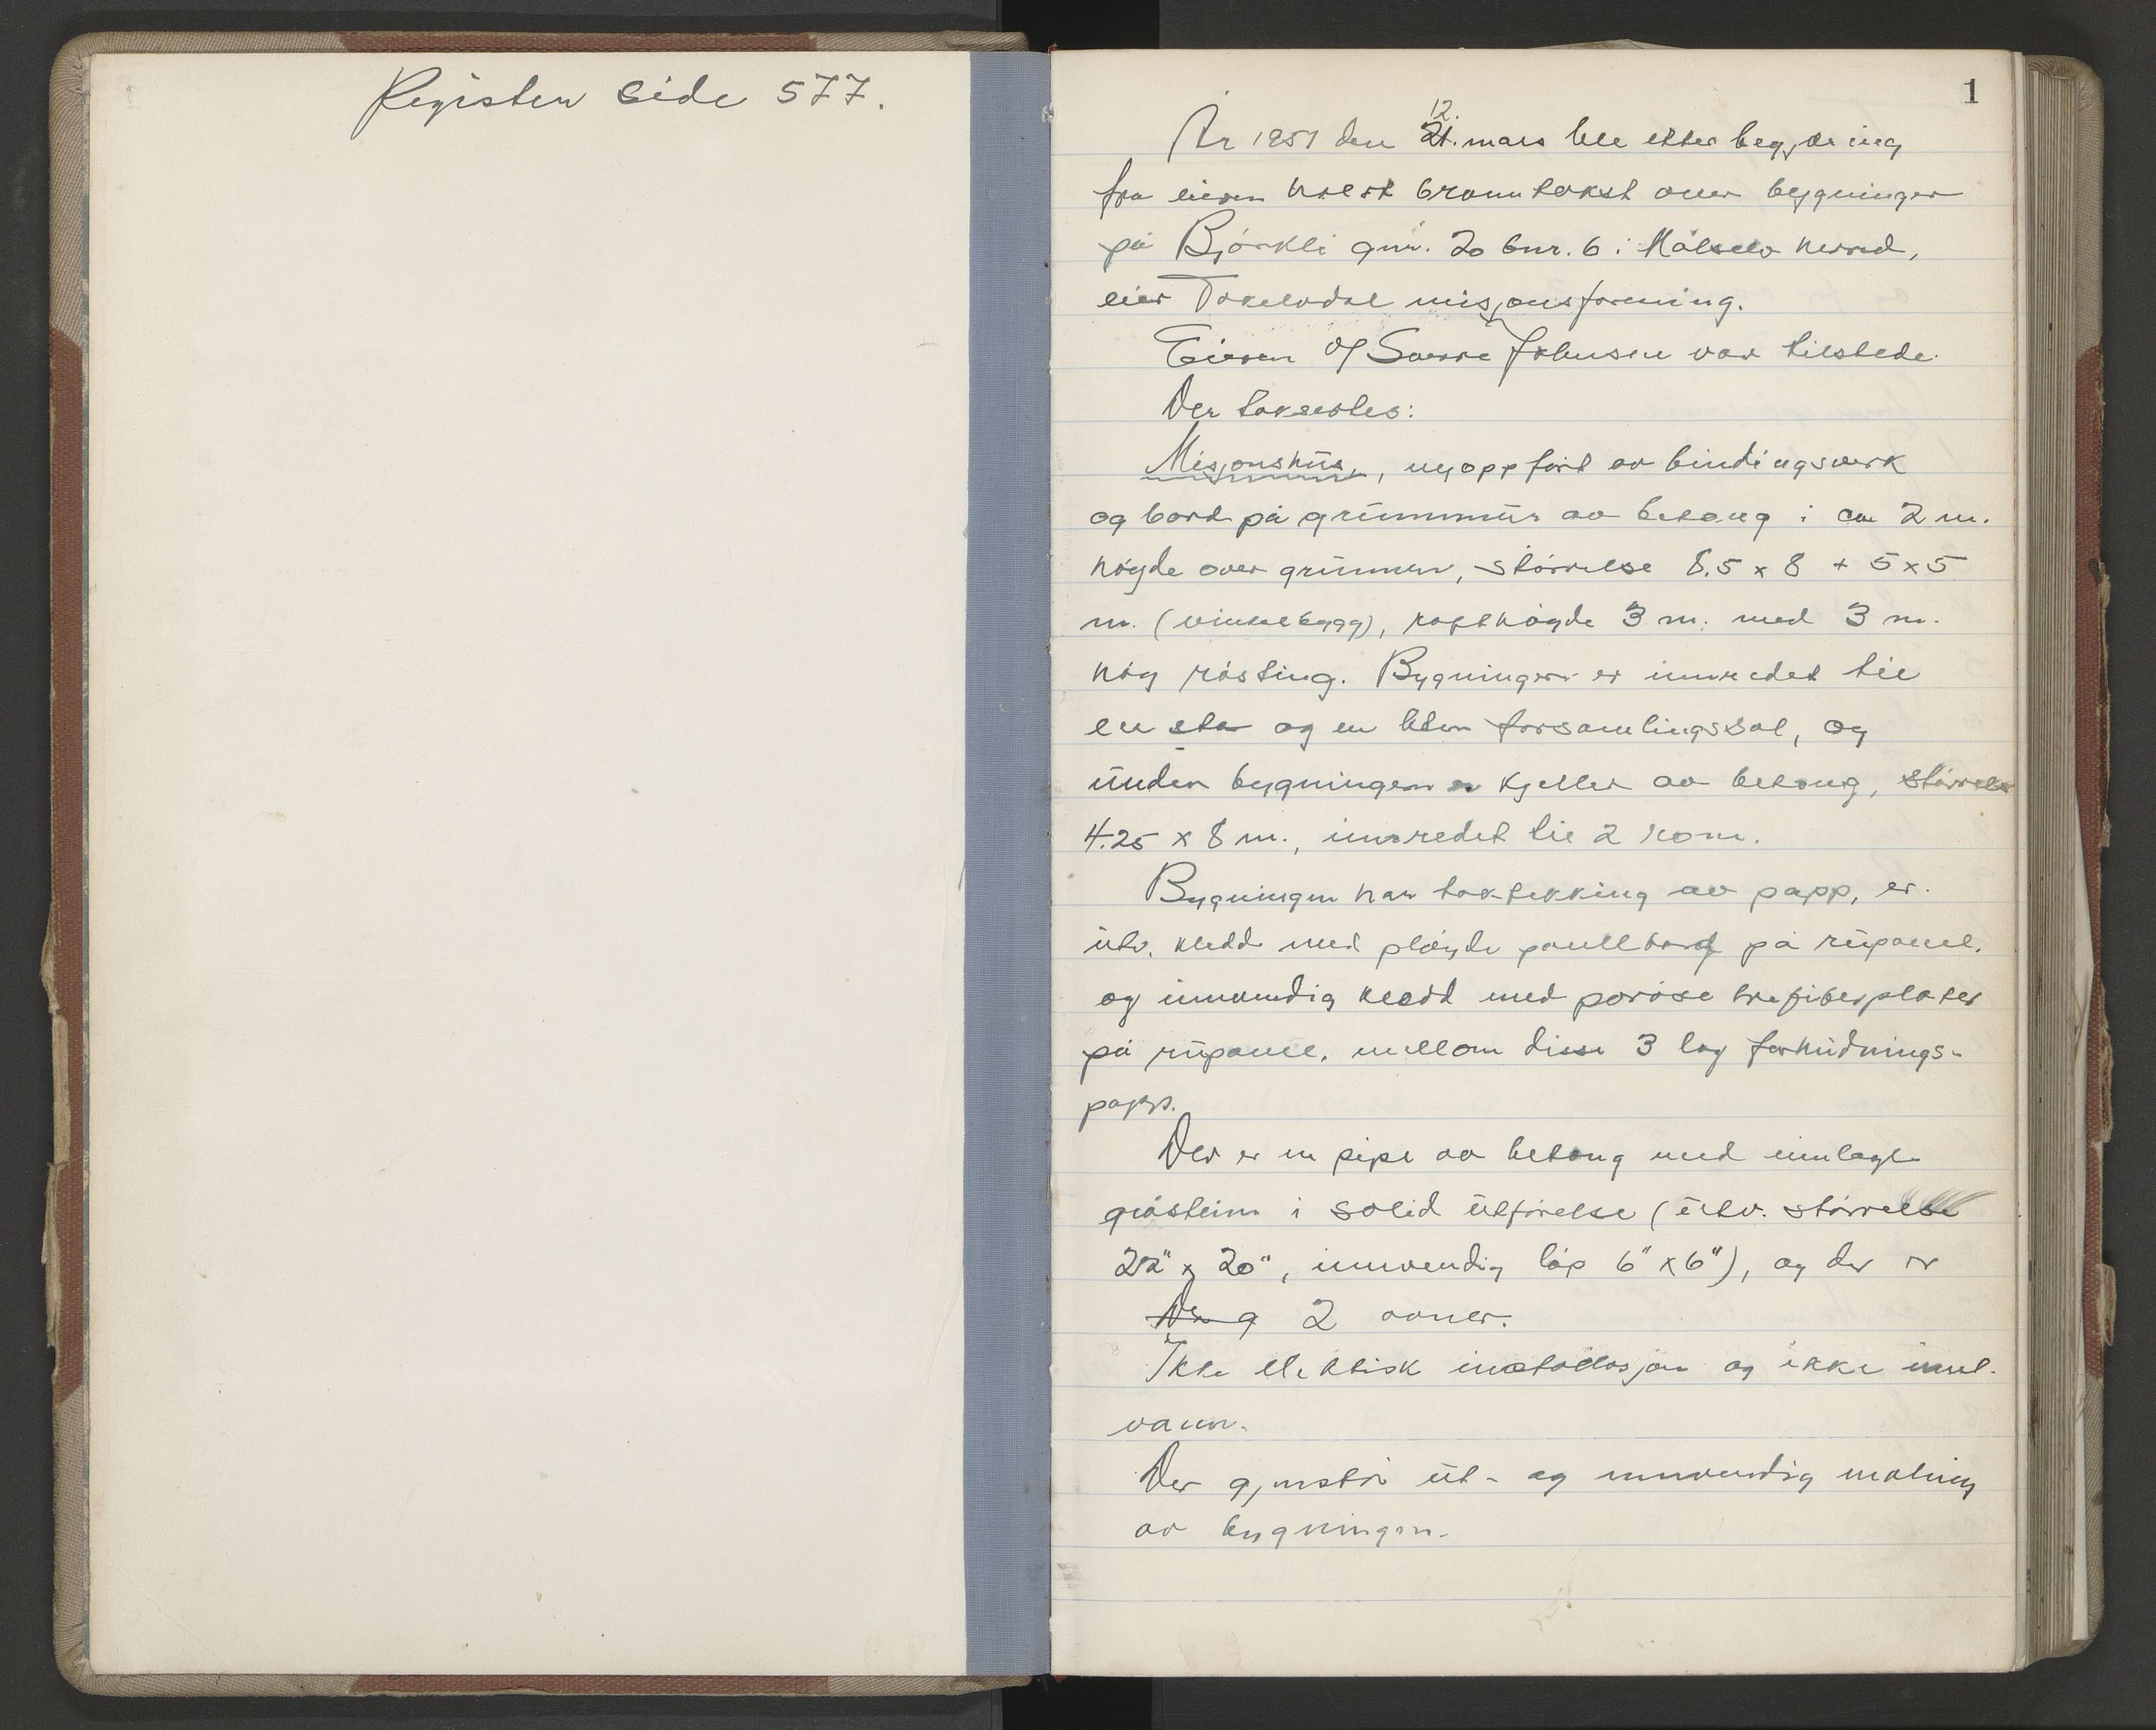 Register side 577.
1
År 1951 den 12. mars ble etter begjæring
fra eieren holdt branntakst over bygninger
på Björkli gnr. 20 bnr. 6 i Målselv herred,
eier Takelvdal misjonsforening.
Eieren v/ Sverre Johnsen var tilstede.
Der taksertes:
Misjonshus, nyoppfört av bindingsverk
og bord på grunnmur av betong i ca 2 m.
högde over grunnen, störrelse 8.5 x 8 + 5 x 5
m. (vinkelbygg), rafthögde 3 m. med 3 m.
höy rösting. Bygningen er innredet til
en stor og en liten forsamlingssal, og
under bygningen er kjeller av betong, störrelse
4.25 x 8 m., innredet til 2 rom.
Bygningen har taktekking av papp, er
utv. kledd med plöyde panelbord på rupanel.
og innvendig kledd med poröse trefiberplater
på rupanel, mellom disse 3 lag forhudnings-
papp.
Der er en pipe av betong med innlagt
gråstein i solid utförelse (utv. störrelse
22" x 20", innvendig löp 6" x 6"), og der er
Der g 2 ovner.
Ikke elektrisk installasjon og ikke innl.
vann.
Der gjenstår ut- og innvendig maling
av bygningen.